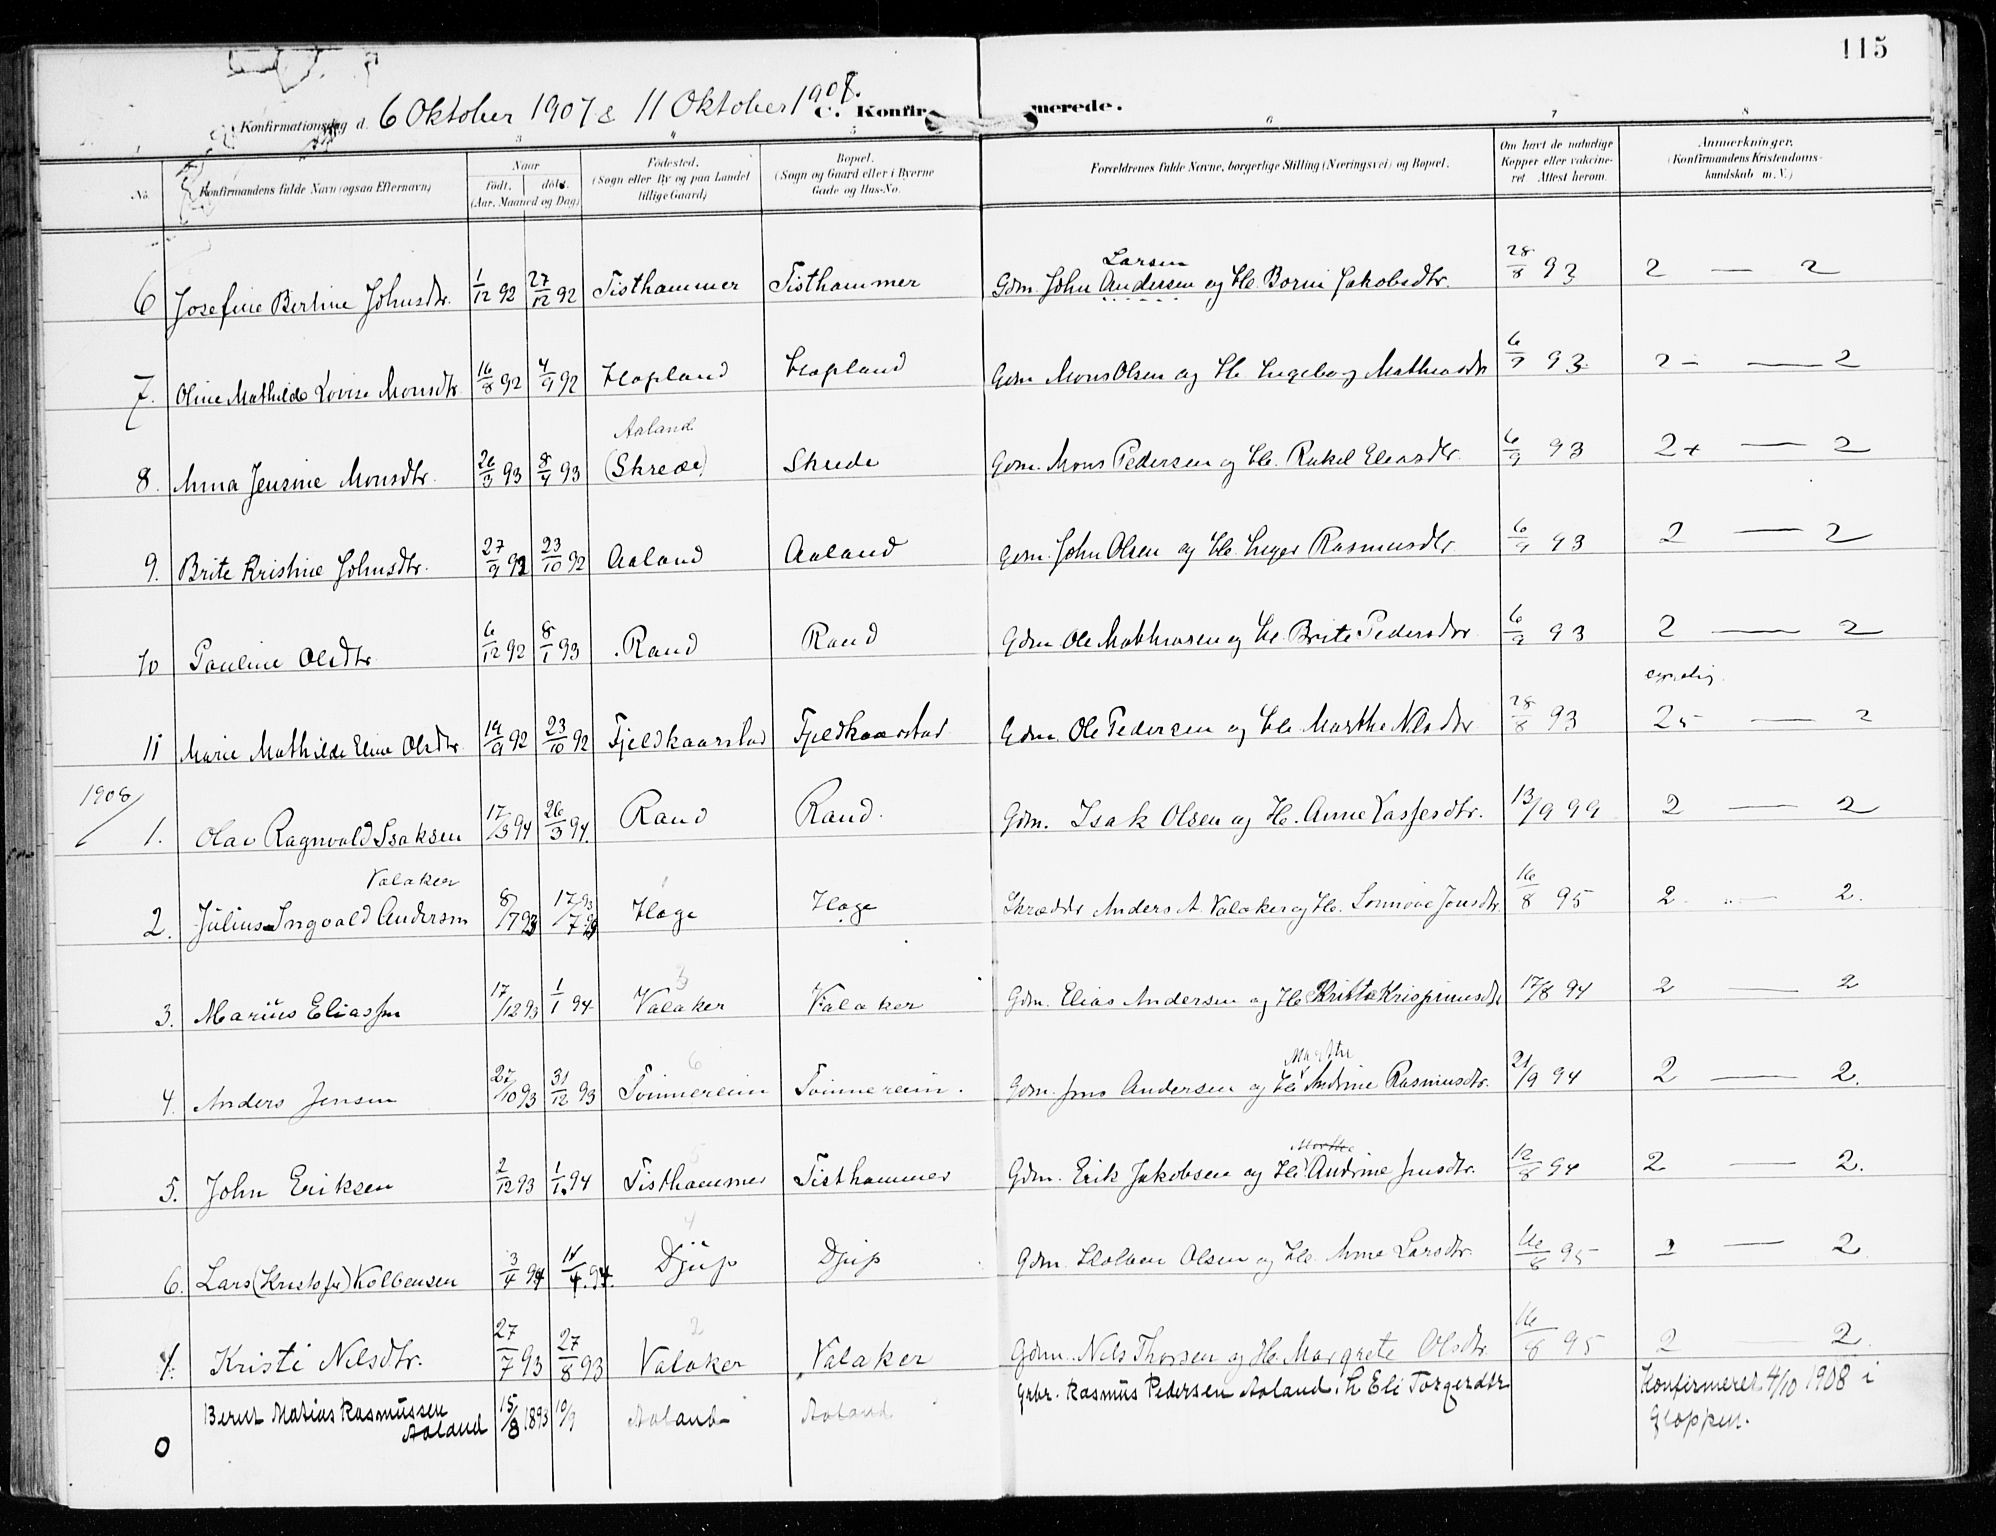 115
Konfirmationsdag d. 6 Oktober 1907 & 11 Oktober 1908. C. Konfirmerede.
1 3 4 5 6 7 8
No. Konfirmandens fulde Navn (ogsaa Efternavn) Naar født, døbt. (Aar, Maaned og Dag) Fødested. (Sogn eller By og paa Landet tillige Gaard) Bopæl. (Sogn og Gaard eller i Byerne Gade og Hus-No. Forældrenes fulde Navne, borgerlige Stilling (Næringsvei) og Bopæl. Om havt de naturlige Kopper eller vaccineret Attest herom. Anmerkninger. (Konfirmandens Kristendomskundskab m. V.)
Larsen
6 Josefine Bertine Johnsdtr. 1/12 92 27/12 92 Tisthammer Tisthammer Gdm. John Andersen og H. Borni Jakobsdtr. 28/8 93 2 — 2
7. Oline Mathilde Lovise Monsdtr 16/8 92 4/9 92 Hopland Hopland Gdm Mons Olsen og H. Ingeborg Mathiasdtr 6/9 93 2 - — 2
Aaland
8. Anna Jensine Monsdtr. 26/3 93 8/4 93 (Skrede) Skrede Gdm. Mons Pedersen og H. Rakel Eliasdtr. 6/9 93 2+ — 2
9. Brite Kristine Johnsdtr. 27/9 92 23/10 92 Aaland Aaland Gdm. John Olsen og H. Inger Rasmusdtr 6/9 93 2 — 2
10 Pauline Olsdtr. 6/12 92 8/1 93 Rand Rand Gdm Ole Mathiasen og H. Brite Pedersdtr 6/9 93 2 — 2
11 Marie Mathilde Eline Olsdtr. 19/9 92 23/10 92 Fjeldkaarstad Fjeldkaarstad Gdm. Ole Pedersen og H. Marthe Nilsdtr 28/8 93 25 — 2
1908/
1. Olav Ragnvald Isaksen 17/3 94 26/3 94. Rand Rand. Gdm. Isak Olsen og H. Anne Lassesdtr. 13/9 99 2 — 2
Valaker
2. Julius Ingvald Andersen 8/7 93 17/7 93 Hage Hage Skrædder Anders A. Valaker og H. Sonnove Jonsdtr. 16/8 95 2. — 2.
3
3. Marius Eliassen 17/12 93 1/1 94 Valaker Valaker Gdm. Elias Andersen og H. Kritte Krispinusdtr 17/8 94 2 — 2
6 Marthe
4. Anders Jensen 27/10 93 31/12 93 Tvinnereim Tvinnereim. Gdm. Jens Andersen og H. Andrine Rasmusdtr. 21/9 94 2 — 2.
5 Marthe
5. John Eriksen 2/12 93 1/1 94 Tisthammer Tisthammer Gdm. Erik Jakobsen og H. Andrine Jensdtr. 12/8 94 2 — 2.
4
6. Lars (Kristofer) Kolbensen 3/4 94 11/4 94. Djúp Djúp Gdm. Kolben Olsen og H. Anne Larsdtr. 16/8 95 2 — 2
2
7. Kristi Nilsdtr. 27/7 93 27/8 93 Valaker Valaker Gdm. Nils Thorsen og H. Margrete Olsdtr. 16/8 95 2 — 2.
0 Bernt Matias Rasmussen Aaland 15/8 1893 10/9 Aaland Aaland Grbr. Rasmus Pedersen Aaland. H. Eli Torgersdtr Konfirmeret 4/10 1908 i Gloppen.